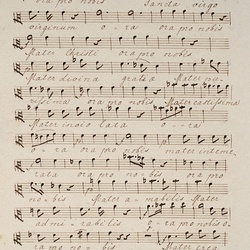 ora pro nobis Sancta virgo
virginum o - ra ora pro nobis
Mater Christi ora pro nobis
Mater divina gratia Mater pu -
rissima ora pro nobis Mater castissima
Mater inviolata o - ra
o - ra ora pro nobis mater inteme
rata ora pro nobis ora pro
nobis Mater amabilis Mater
admirabilis ora pro nobis o -
ra pro nobis Mater crea